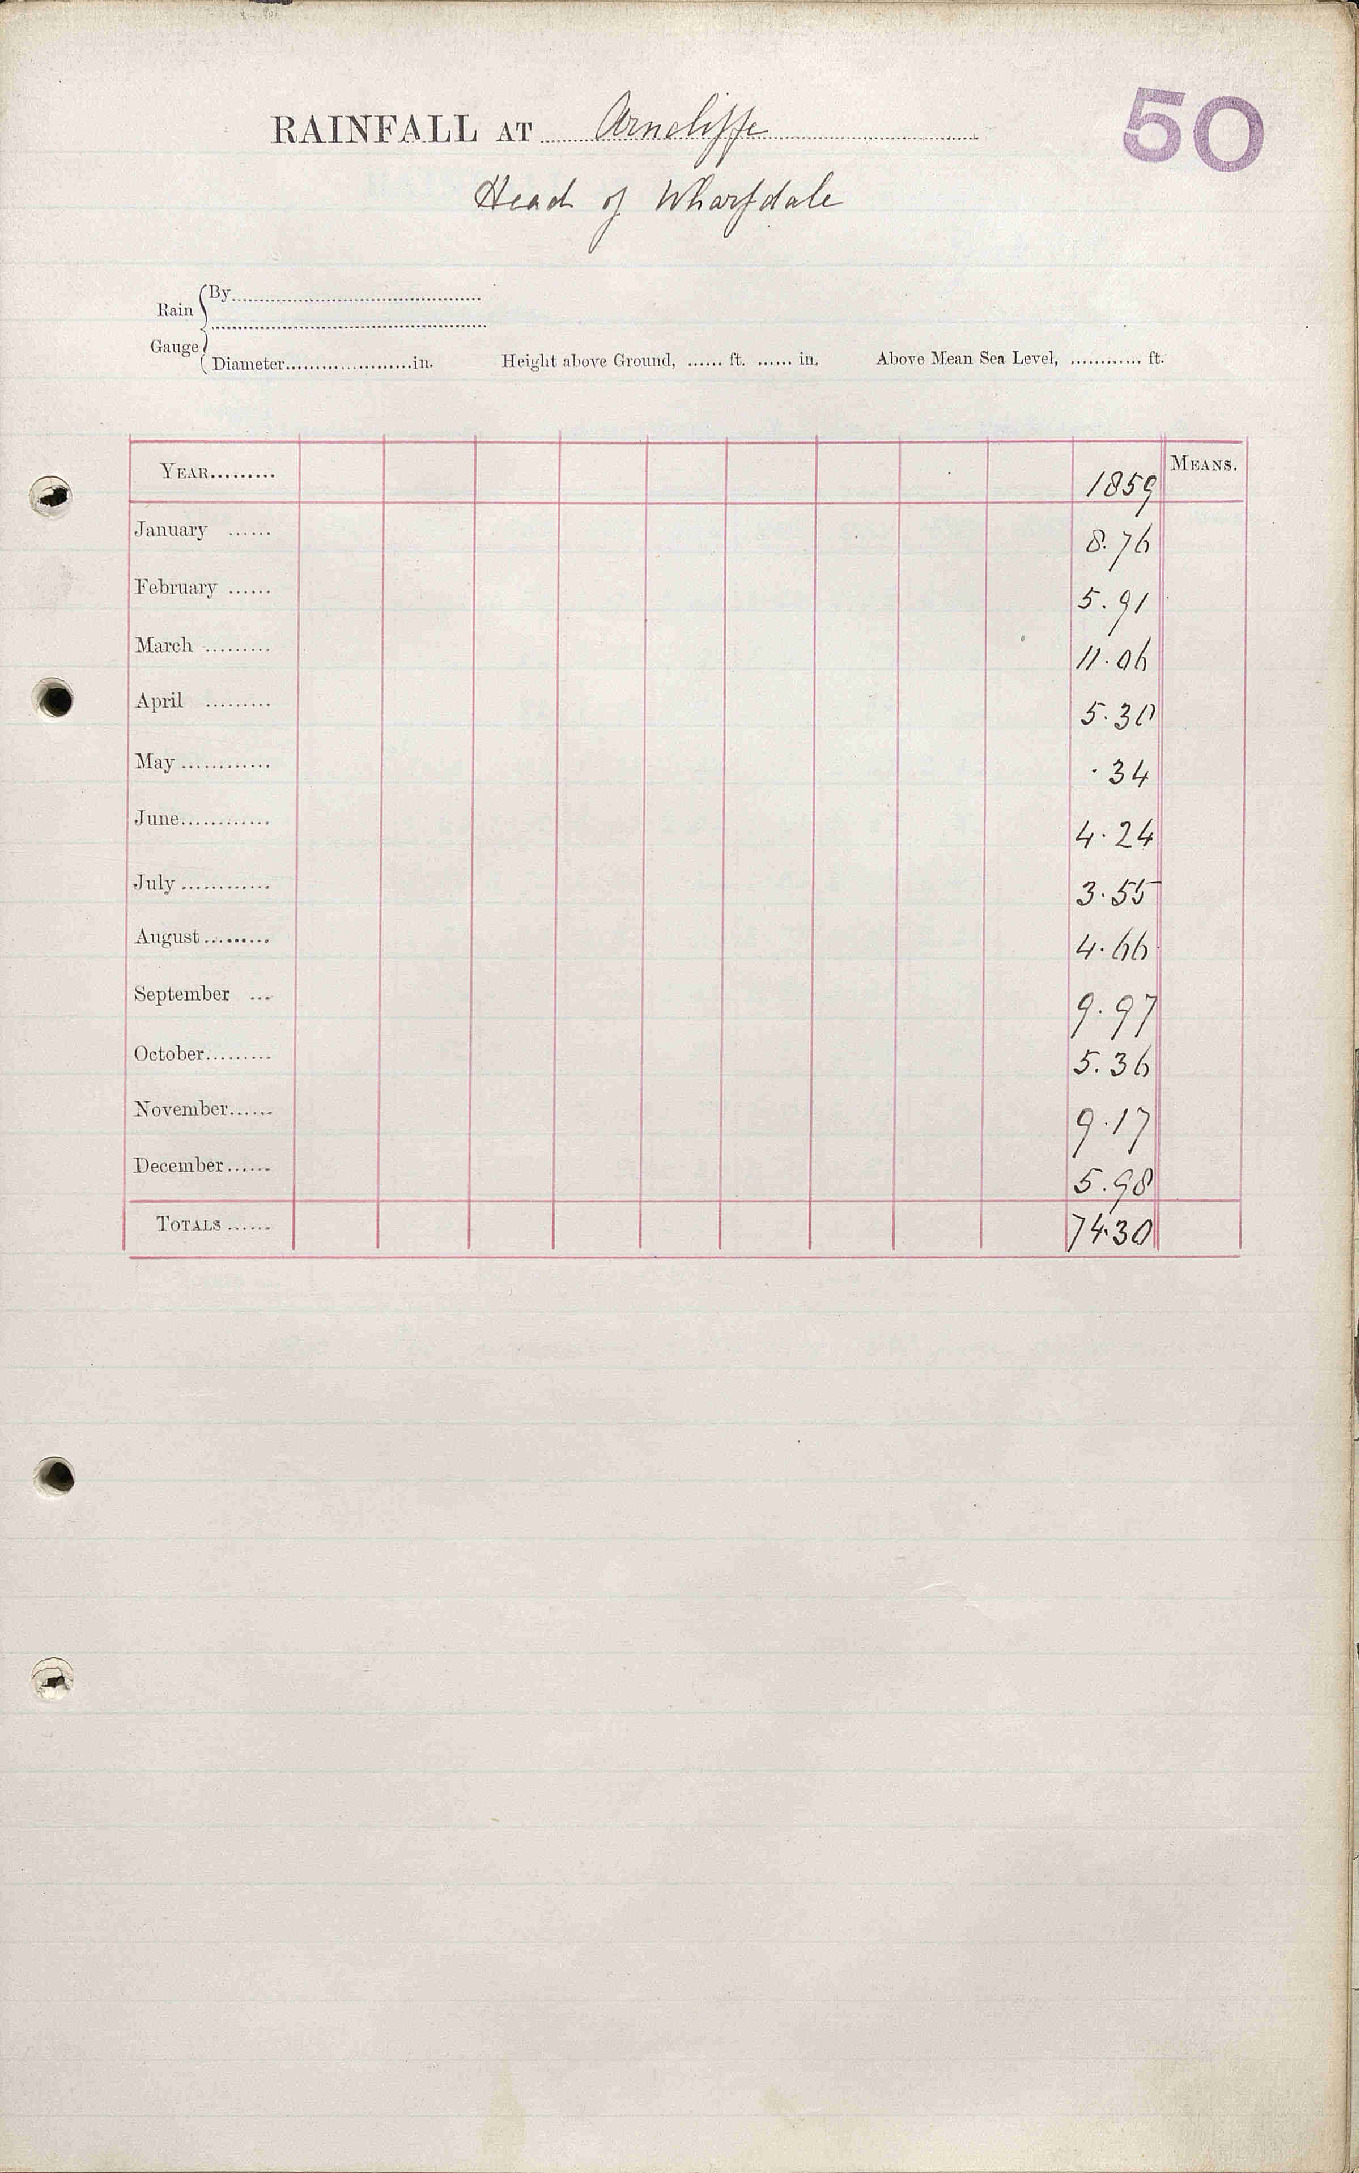 50
RAINFALL AT Arncliffe
Head of Wharfdale
Rain Gauge
By
Diameter in. Height above Ground, ...... ft. ...... in. Above Mean Sea Level, ............ ft.
YEAR......... 1859 MEANS.
January ...... 8.76
February ...... 5.91
March ......... 11.06
April ......... 5.30
May............ .34
June............ 4.24
July............ 3.55
August......... 4.66
September ... 9.97
October......... 5.36
November...... 9.17
December...... 5.98
TOTALS ...... 74.30